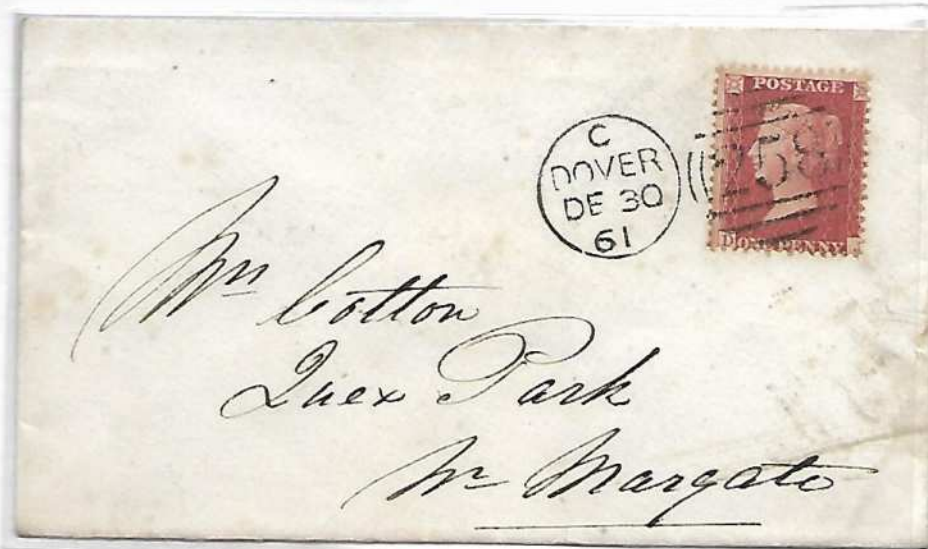 POSTAGE
C
DOVER
DE 30
61
258
ONE PENNY
Mrs Cotton
Quex Park
Nr Margate